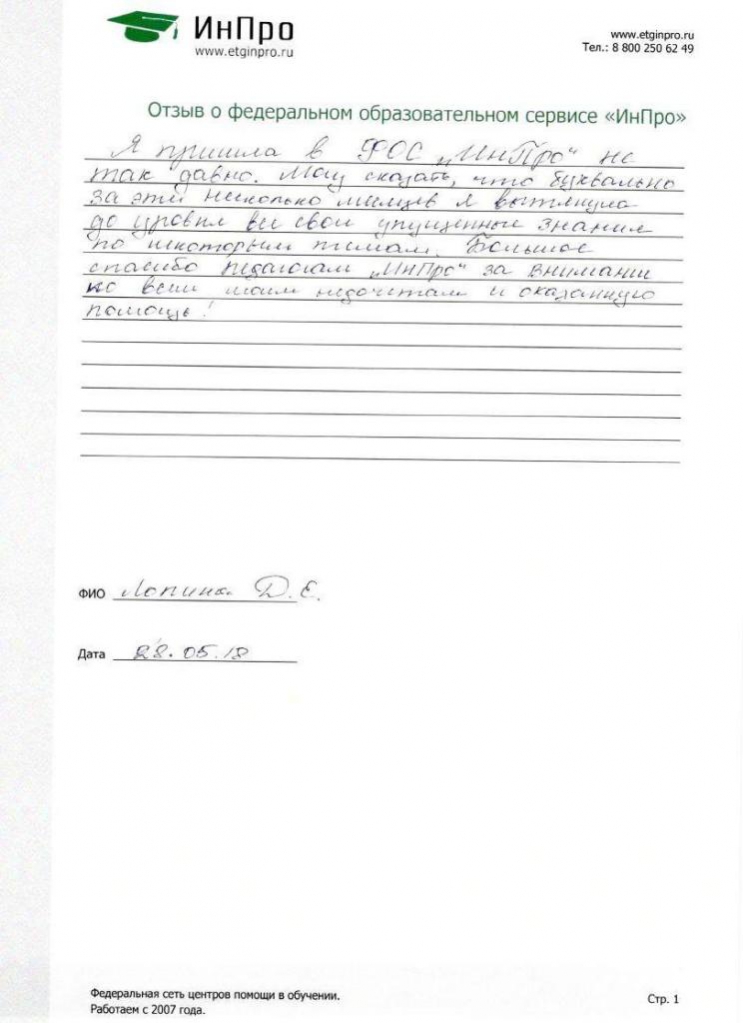 ИнПро
www.etginpro.ru
www.etginpro.ru
Тел.: 8 800 250 62 49
Отзыв о федеральном образовательном сервисе «ИнПро»
Я пришла в ФОС „ИнПро“ не
так давно. Могу сказать, что буквально
за эти несколько месяцев я вытянула
до уровня все свои упущенные знания
по некоторым темам. Большое
спасибо педагогам „ИнПро“ за внимание
ко всем моим недочетам и оказанную
помощь!
ФИО Лапина Д. Е.
Дата 28.05.18
Федеральная сеть центров помощи в обучении.
Работаем с 2007 года.
Стр. 1